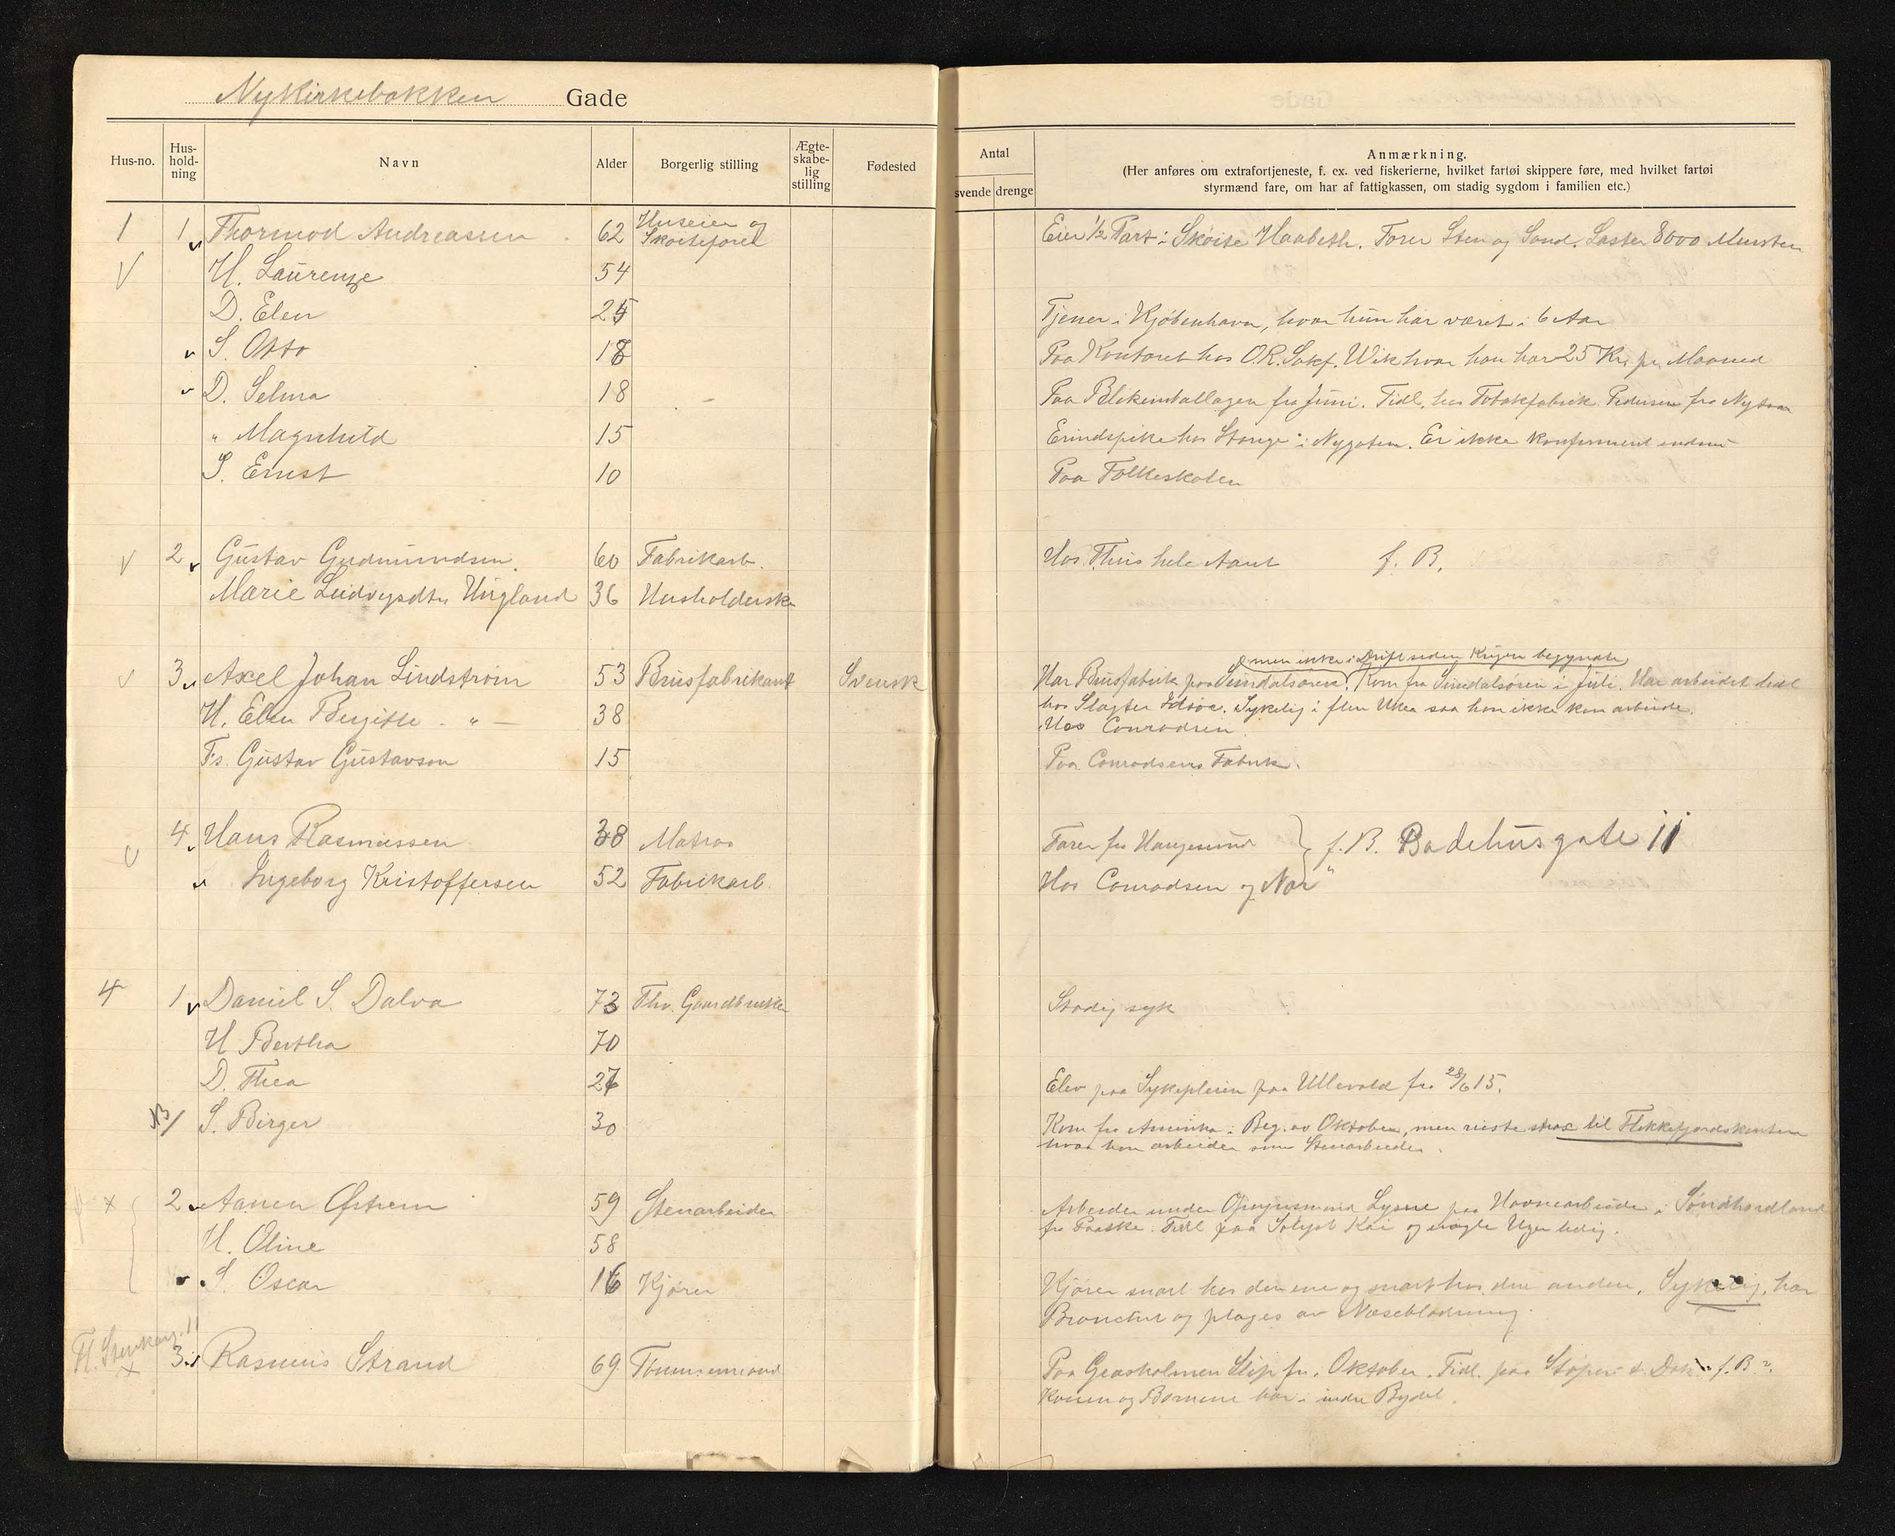 Nykirkebakken Gade
Hus-no. Hus-hold-ning Navn Alder Borgerlig stilling Ægte-skabe-lig stilling Fødested Antal svende drenge Anmærkning.
(Her anføres om extrafortjeneste, f. ex. ved fiskerierne, hvilket fartøi skippere føre, med hvilket fartøi
styrmænd fare, om har af fattigkassen, om stadig sygdom i familien etc.)
1 1 Thormod Andreassen 62 Huseier og Skøitefører Eier 1/2 Part i Skøite Haabeth. Fører Sten og Sand. Laster 8000 Mursten
H. Laurenze 54
D. Elen 25 Tjener i Kjøbenhavn, hvor hun har været i 6 Aar
S. Otto 18 Paa Kontoret hos O.R. Sakf. Wik hvor han har 25 Kr. pr. Maaned
D. Selma 18 Paa Blikemballagen fra Juni. Tidl. hos Tobakfabrik. Pedersen fra
" Magnhild 15 Erindspike hos Stange i Nygaten. Er ikke konfirmert endnu
S. Ernst 10 Paa Folkeskolen
2 Gustav Gudmundsen 60 Fabrikarb. Hos Thiis hele Aaret f. B.
Marie Ludvigsdtr. Ungland 36 Husholderske
men ikke i Drift siden Krigen begyndte
3 Axel Johan Lindstrøm 53 Brusfabrikant Svensk Har Brusfabrik paa Sundalsøren. Kom fra Sundalsøren i Juli. Har arbeidet tidl
hos Slagter Idsøe. Sykelig i flere Uker saa han ikke kan arbeide.
H. Elen Bergitte - " - 38 Hos Conradsen.
Fs. Gustav Gustavson 15 Paa Conradsens Fabrik.
4 Hans Rasmussen 38 Matros Farer fra Haugesund } f. B. Badehusgate 11
Ingeborg Kristoffersen 52 Fabrikarb. Hos Conradsen og Nor"
4 1 Daniel S. Dalva 73 Fhv. Gaardbruker Stadig syk
H Bertha 70
D. Thea 26 Elev paa Sykepleien paa Ullevold fra 28/6 15.
S. Birger 30 Kom fra Amerika i Beg. av Oktober, men reiste strax til Flekkefjordskanten
hvor han arbeider som Stenarbeider.
x 2 Aanen Østrem 59 Stenarbeider Arbeider under Lyene paa Havnearbeide i Søndhordland
fra Paaske. Tidl paa Kai og nogle Uger ledig.
H. Oline 58
S. Oscar 16 Kjører Kjører snart hos den ene og snart hos den anden. Sykelig, har
Bronchit og plages av Næseblødning.
x 3 Rasmus Strand 69 Tømmermand Paa Grasholmen Slip fra Oktober. Tidl. paa Støperi & Dok f. B?.
Konen og Børnene bor i indre Bydel.